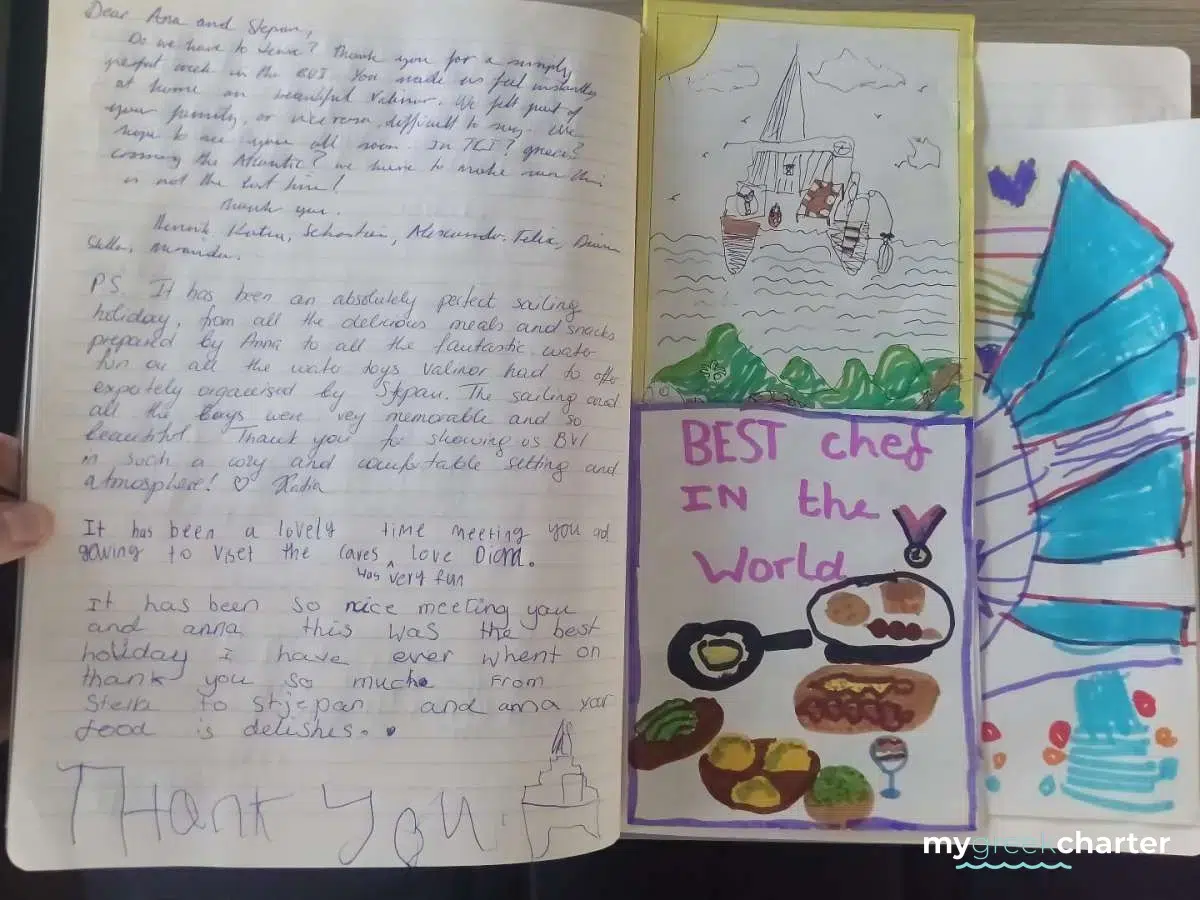 Dear Ana and Stepan,
Do we have to leave? Thank you for a simply
perfect week in the BVI. You made us feel instantly
at home on beautiful Valinor. We felt part of
your family, or vice versa, difficult to say. We
hope to see you all soon. In TCI? Greece?
Crossing the Atlantic? We have to make sure this
is not the last time!
Thank you.
Henrik Katia, Sebastian, Alexander, Felix,
Stella,
PS. It has been an absolutely perfect sailing
holiday, from all the delicious meals and snacks
prepared by Anna to all the fantastic water
fun on all the water toys Valinor had to offer
expertely organised by Stepan. The sailing and
all the bays were very memorable and so
beautiful. Thank you for showing us BVI
in such a cozy and comfortable setting and
atmosphere! ♡ Katia
It has been a lovely time meeting you and
gowing to viset the caves love Diom.
was very fun
It has been so nice meeting you
and anna this was the best
holiday I have ever whent on
thank you so muche from
Stella to stjepan and anna your
food is delishes. ♥
THank You
BEST chef
IN the
World
1
mygreekcharter